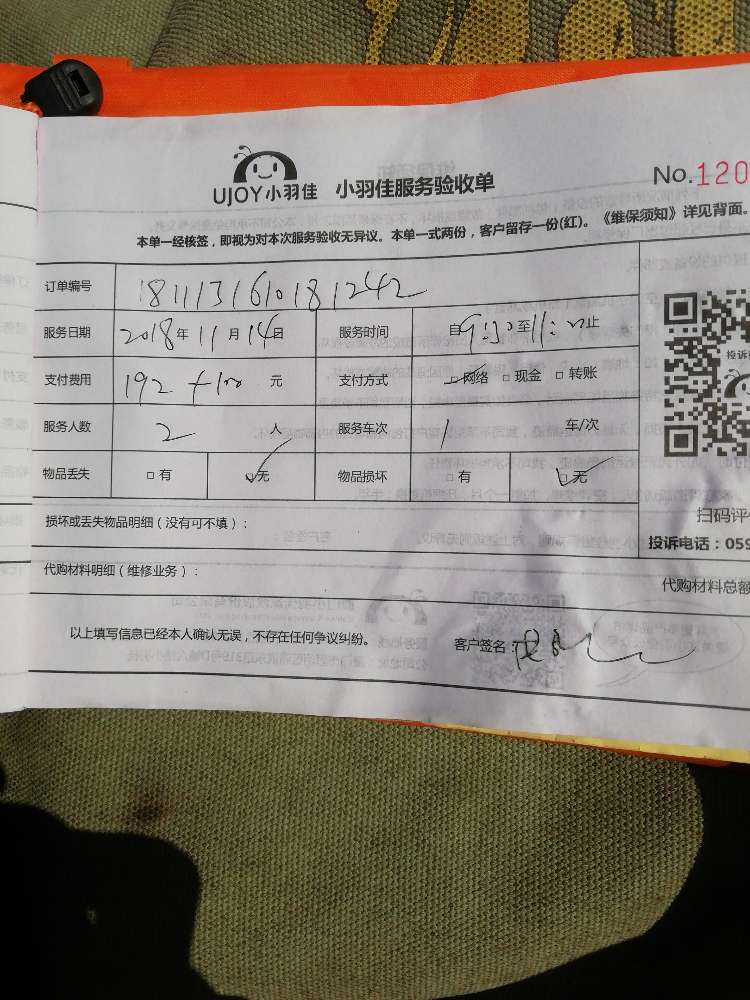 UJOY小羽佳 小羽佳服务验收单 No.120
本单一经核签，即视为对本次服务验收无异议。本单一式两份，客户留存一份(红)。《维保须知》详见背面。
订单编号 1811131610181242
服务日期 2018年11月14日 服务时间 自9:30至11:00止
支付费用 192+100 元 支付方式 □网络 □现金 □转账
服务人数 2 人 服务车次 1 车/次
物品丢失 □有 □无 物品损坏 □有 □无
损坏或丢失物品明细（没有可不填）：
扫码评
投诉电话：059
代购材料明细（维修业务）：
代购材料总额
以上填写信息已经本人确认无误，不存在任何争议纠纷。 客户签名：